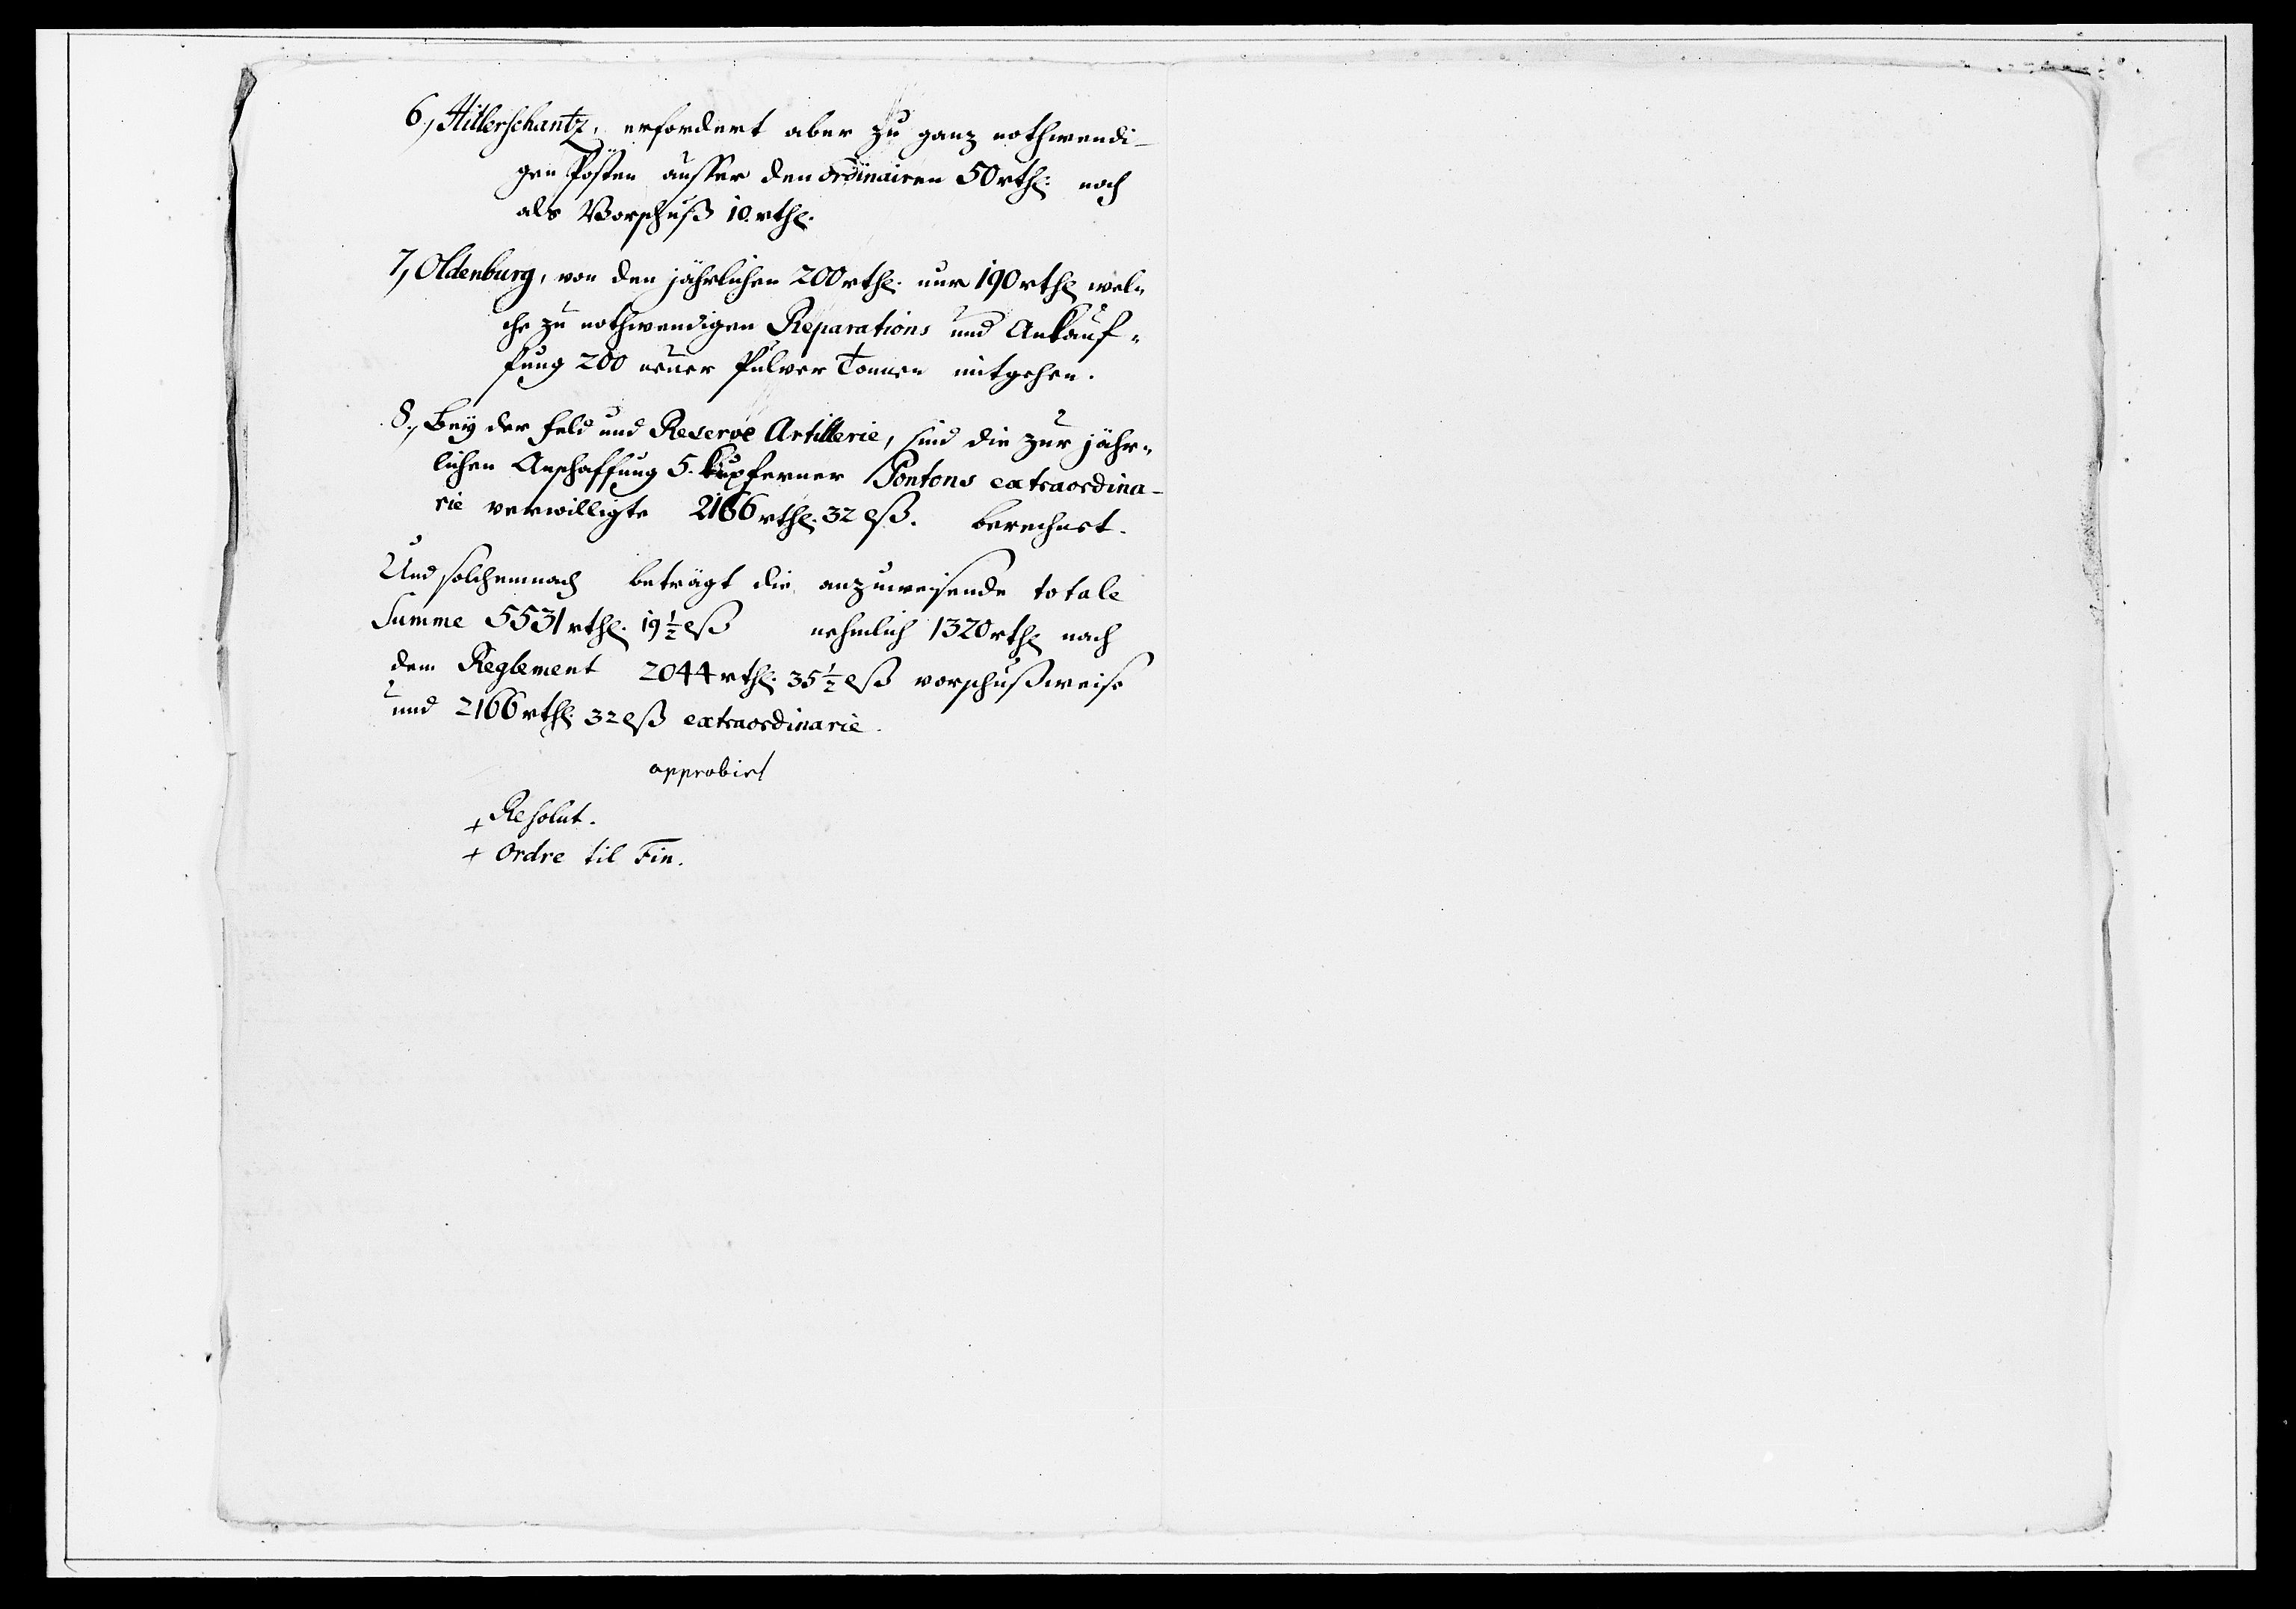 6., Hitlerschantz, erfordert aber zu ganz nothwendi-
gen Posten ausser den ordinairen 50 rthl: noch
als Vorschuß 10. rthl.
7, Oldenburg, von den jährlichen 200 rthl. nur 190 rthl wel=
che zu nothwendigen Reparations und Ankauf=
fung 200 neuer Pulver Tonnen mitgehen.
8., Bey der Feld und Reserve Artillerie, sind die zur jähr=
lichen Anschaffung 5. kupferner Pontons extraordina-
rie verwilligte 2166 rthl. 32 lß. berechnet.
Und solchemnach beträgt die anzuweisende totale
Summe 5531 rthl. 19 1/2 lß nehmlich 1320 rthl nach
dem Reglement 2044 rthl. 35 1/2 lß vorschußweise
und 2166 rthl. 32 lß extraordinarie.
approbirt
+ Resolut.
+ Ordre til Fin.